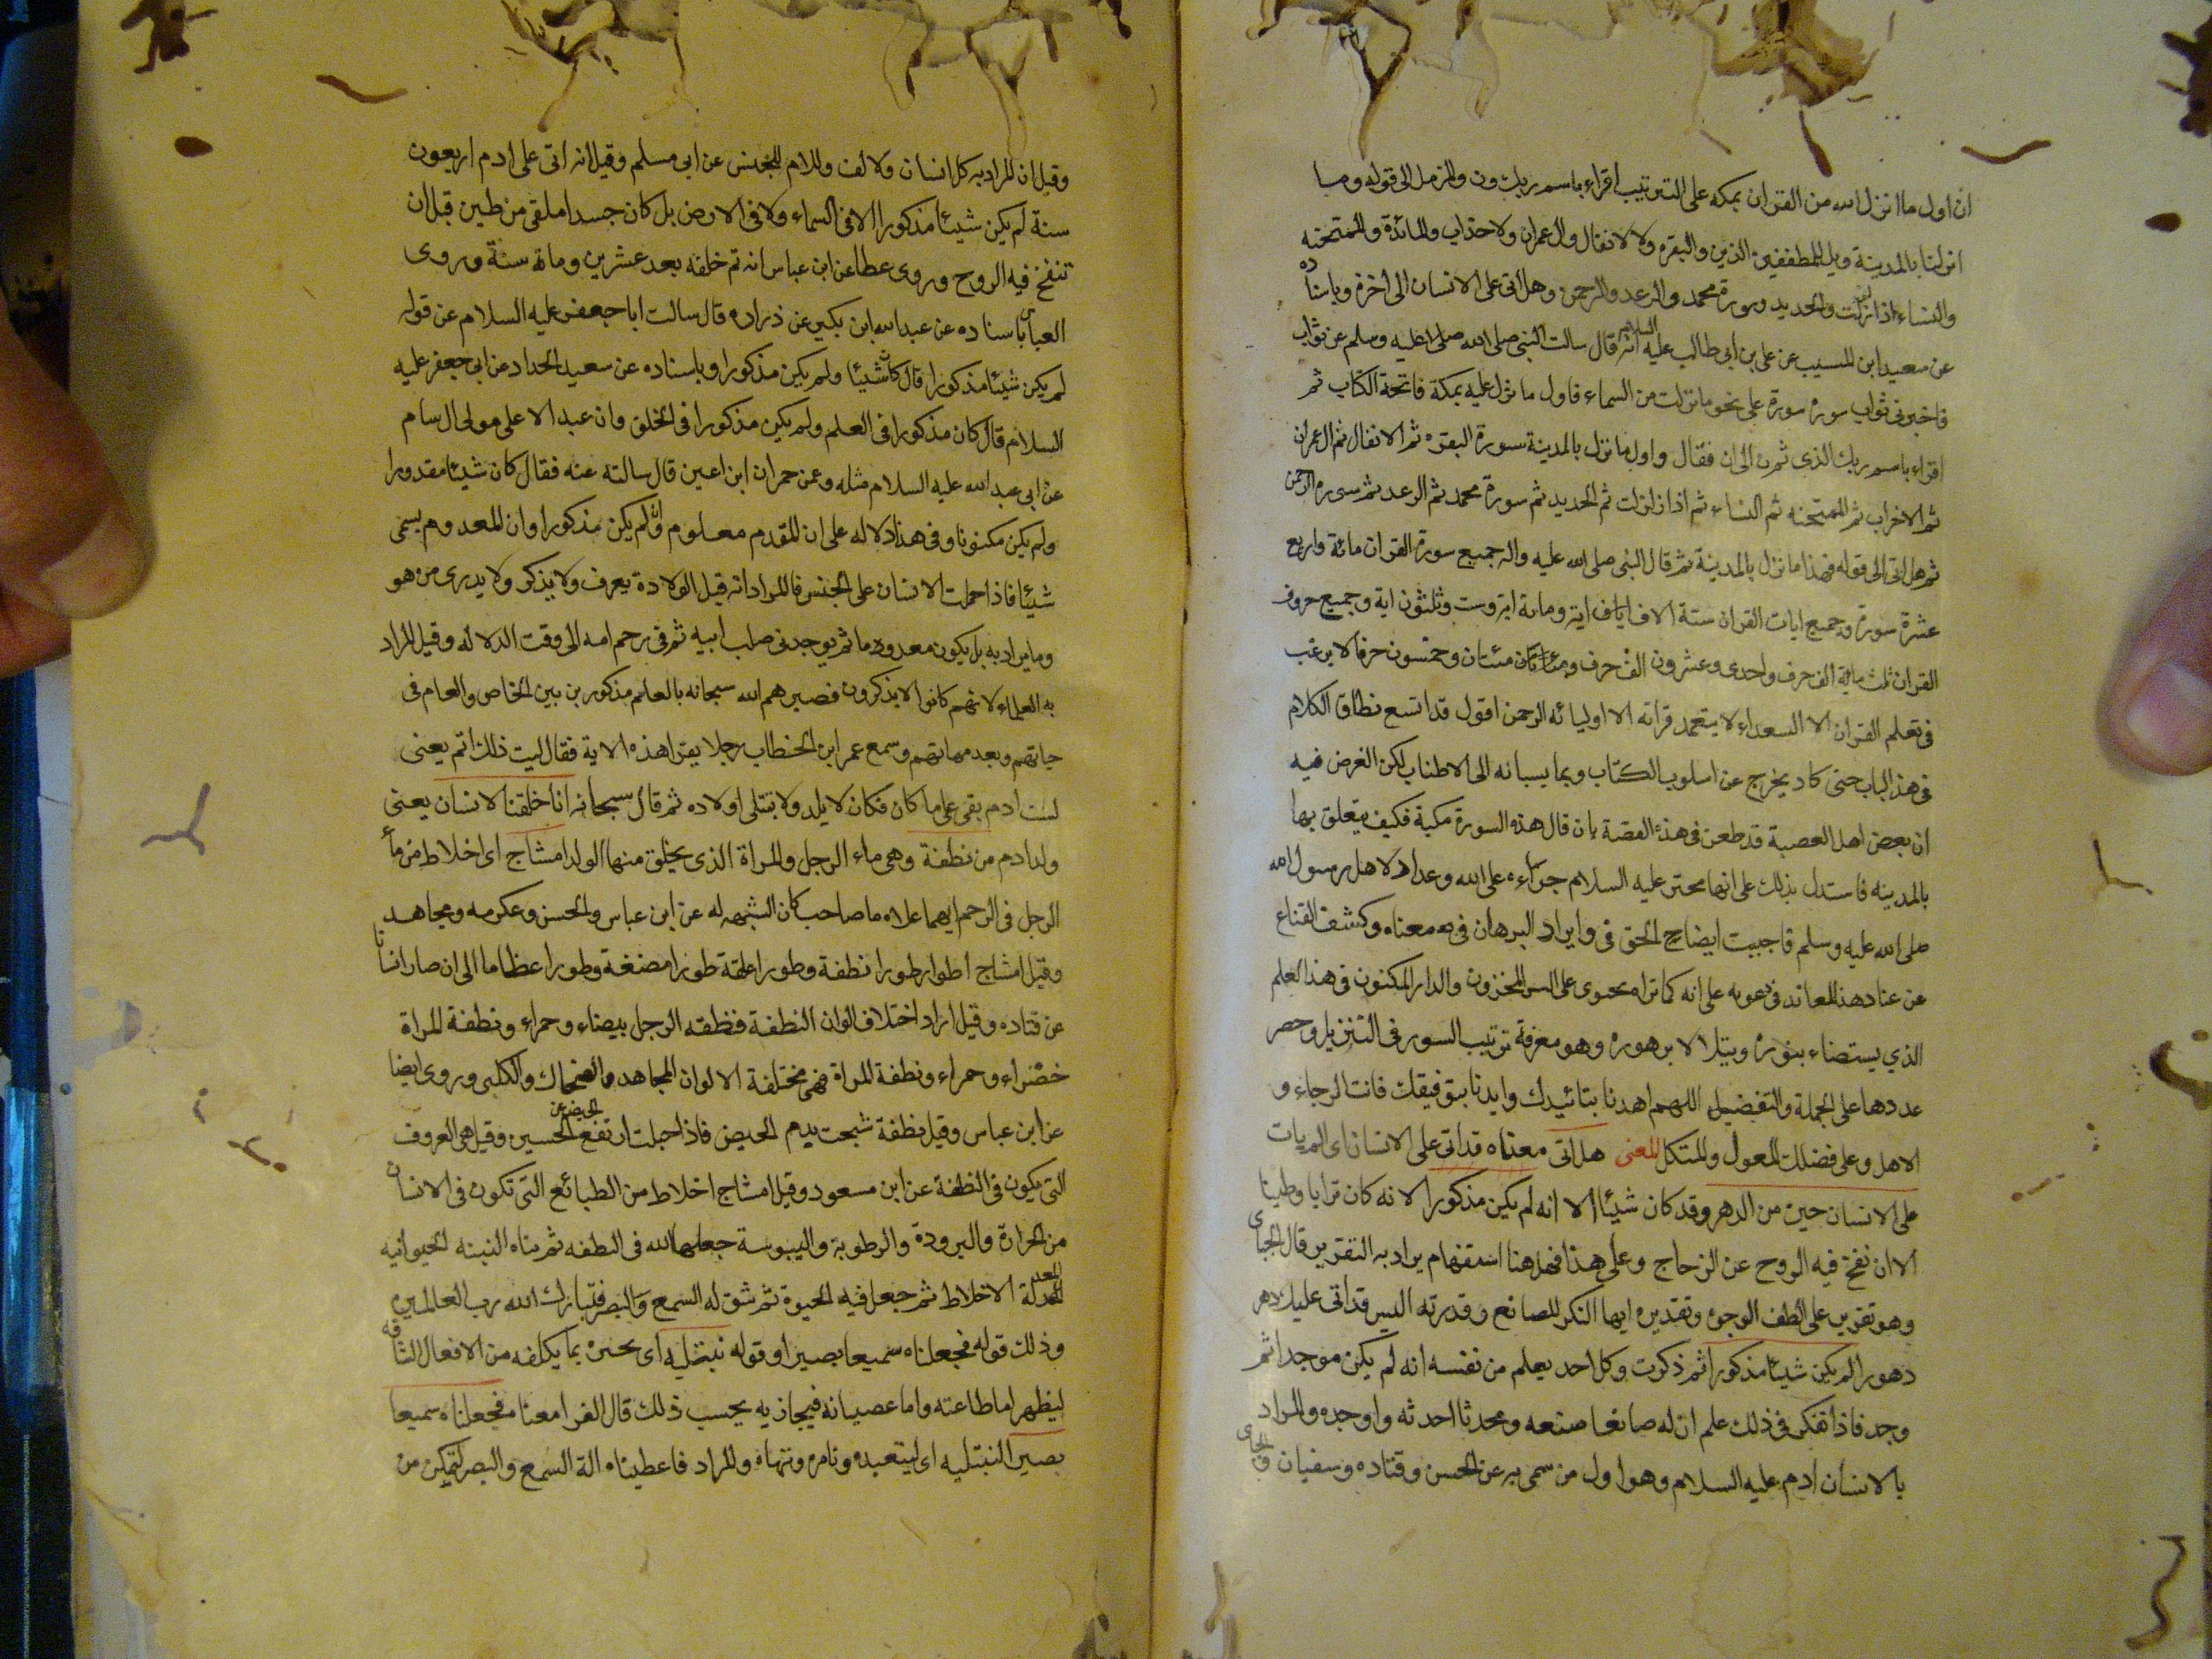 ان اول ما انزل الله من القران بمكه على الترتيب اقراء باسم ربك ون والمزمل الى قوله وما
انزلنا بالمدينة ويل للمطففين الذين والبقره ولا لانفال وال عمران ولاحذاب والمائدة والممتحنه
والنساء واذا زلزلت والحديد وسورة محمد والرعد والرحمن وهل اتى على الانسان الى اخره وباسناده
عن سعيد ابن المسيب عن على بن ابى طالب عليه السلام انه قال سالت النبى صلى الله صلى اعليه وسلم عن ثواب
فاخبرنى ثواب سوره سورة على نحو ما نزلت من السماء فاول ما نزل عليه بمكة فاتحة الكتاب ثم
اقراء باسم ربك الذى ثم ن الى ان فقال واول ما نزل بالمدينة سورة البقره ثم الانفال ثم ال عمران
ثم الاخراب ثم الممتحنه ثم النساء ثم اذا زلزلت ثم الحديد ثم سورة محمد ثم الرعد ثم سوره الرحمن
ثم هل اتى الى قوله فهذا ما نزل بالمدينة ثم قال النبى صلى الله عليه واله جميع سورة القران مائة واربع
عشرة سورة وجميع ايات القران ستة الاف اياف اية ومائة اية وست وثلثون اية وجميع حروف
القران ثلث مائة الف حرف واحدى وعشرون الف حرف ومئاتان مئتان وخمسون حرفا لا يرغب
فى تعلم القران الا السعداء لا يتعمد قراته الا اوليائه الرحمن اقول قد اتسع نطاق الكلام
فى هذا الباب حتى كاد يخرج عن اسلوب الكتاب وبما يسبانه الى الاطناب لكن الغرض فيه
ان بعض اهل العصبة قد طعن فى هذه القصة بان قال هذه السورة مكية فكيف يتعلق بها
بالمدينه فاستدل بذلك على انها محترى عليه السلام جراءه على الله وعداد لاهل رسول الله
صلى الله عليه وسلم فاجبيت ايضاح الحق فى وايراد البرهان فى معناه وكشف القناع
عن عناد هذا المعاند فى دعويه على انه كما تراه يحوى على السر المخزون والدار المكنون فى هذا العلم
الذي يستضاء بنوره ويتلالا بزهوره وهو معرفة ترتيب السور فى التنزيل وحصر
عددها على الجملة والتفضيل اللهم اهدنا بتائيدك وايدنا بتوفيقك فانت الرجاء و
الاهل وعلى فضلك المعول والمتكل المعنى هل اتى معناه قد اتى على الانسان اى الم يات
على الانسان حين من الدهر وقد كان شيئا الا انه لم يكن مذكورا لانه كان ترابا وطينا
الا ان نفخ فيه الروح عن الزجاج وعلى هذا فهل هنا استفهام يراد به التقرير قال الجباى
وهو تقرير على الطف الوجوه وتقديره ايها النكر للصانع وقدرته اليس قد اتى عليك دهر
دهورا لم يكن شيئا مذكورا ثم ذكرت وكل احد يعلم من نفسه انه لم يكن موجدا ثم
وجد فاذا تفكر فى ذلك علم ان له صانعا صنعه ومحدثا احدثه واوجده والمراد
بالانسان ادم عليه السلام وهو اول من سمى به عن الحسن وقتاده وسفيان والجباى
وقيل ان المراد به كل انسان ولالف واللام للجنس عن ابى مسلم وقيل انه اتى على ادم اربعون
سنة لم يكن شيئا مذكورا الا فى السماء ولا فى الارض بل كان جسدا ملقى من طين قبل ان
تنفخ فيه الروح وروى عطا عن ابن عباس انه تم خلفه بعد عشرين ومائة سنة وروى
العباس باسناده عن عبد الله ابن بكير عن ذراره قال سالت ابا جعفر عليه السلام عن قوله
لم يكن شيئا مذكورا قال كان شيئا ولم يكن مذكورا وباسناده عن سعيد الحداد عن ابى جعفر عليه
السلام قال كان مذكورا فى العلم ولم يكن مذكورا فى الخلق وان عبد الاعلى مولى ال سام
عن ابى عبد الله عليه السلام مثله وعن حمران ابن اعين قال سالته عنه فقال كان شيئا مقدورا
ولم يكن مكنونا وفى هذا دلاله على ان المقدم معلوم وان لم يكن مذكورا وان المعدوم يسمى
شيئا فاذا حملت الانسان على الجنس فالمراد انه قيل الولادة يعرف ولا يذكر ولا يدرى من هو
وما يراد به بل يكون معدوما ثم يوجد فى صلب ابيه ثم فى رحم امه الى وقت الدلاله وقيل المراد
به العلماء لانهم كانوا لا يذكرون فصيرهم الله سبحانه بالعلم مذكورين بين الخاص والعام فى
حياتهم وبعد مماتهم وسمع عمر ابن الخطاب رجلا يقرا هذه الاية فقال ليت ذلك اتم يعنى
لست ادم بقى على ما كان فكان لا يلد ولا يبتلى اولاده ثم قال سبحانه انا خلقنا الانسان يعنى
ولد ادم من نطفة وهى ماء الرجل والمراة الذى يخلق منها الولد امشاج اى اخلاط من ماء
الرجل فى الرحم ايهما علاه ما صاحب كان الشبهه له عن ابن عباس والحسن وعكرمه ومجاهد
وقيل امشاج اطوار طورا نطفة وطورا علقة طورا مضغة وطورا عظاما الى ان صار انسانا
عن قتاده وقيل اراد اختلاف الوان النطفة فنطقه الرجل بيضاء وحمراء ونطفة المراة
خضراء وحمراء ونطفة المراة فهى مختلفة الالوان المجاهد والضحاك والكلبى وروى ايضا
عن ابن عباس وقيل نطفة شبجت بدم الحيض فاذا حبلت ارتفع الحيض عن الحسين وقيل هى العروف
التى يكون فى النطفة عن ابن مسعود وقيل امشاج اخلاط من الطبائع التى تكون فى الانسان
من الحرارة والبرودة والرطوبة واليبوسة جعلها الله فى النطفه ثم بناه البنيه الحيوانيه
المعدلة الاخلاط ثم جعل فيه الحيوة ثم شق له السمع والبصر فتبارك الله رب العالمين
وذلك قوله فجعلناه سميعا بصيرا وقوله نبتليه اى نحبره بما يكلفه من الافعال الشاقه
ليظهر اما طاعته واما عصيانه فيجازيه بحسب ذلك قال الفرا معناه فجعلناه سميعا
بصيرا لنبتليه اى لنتعبده ونامره وننهاه والمراد فاعطيناه الة السمع والبصر لتمكن من